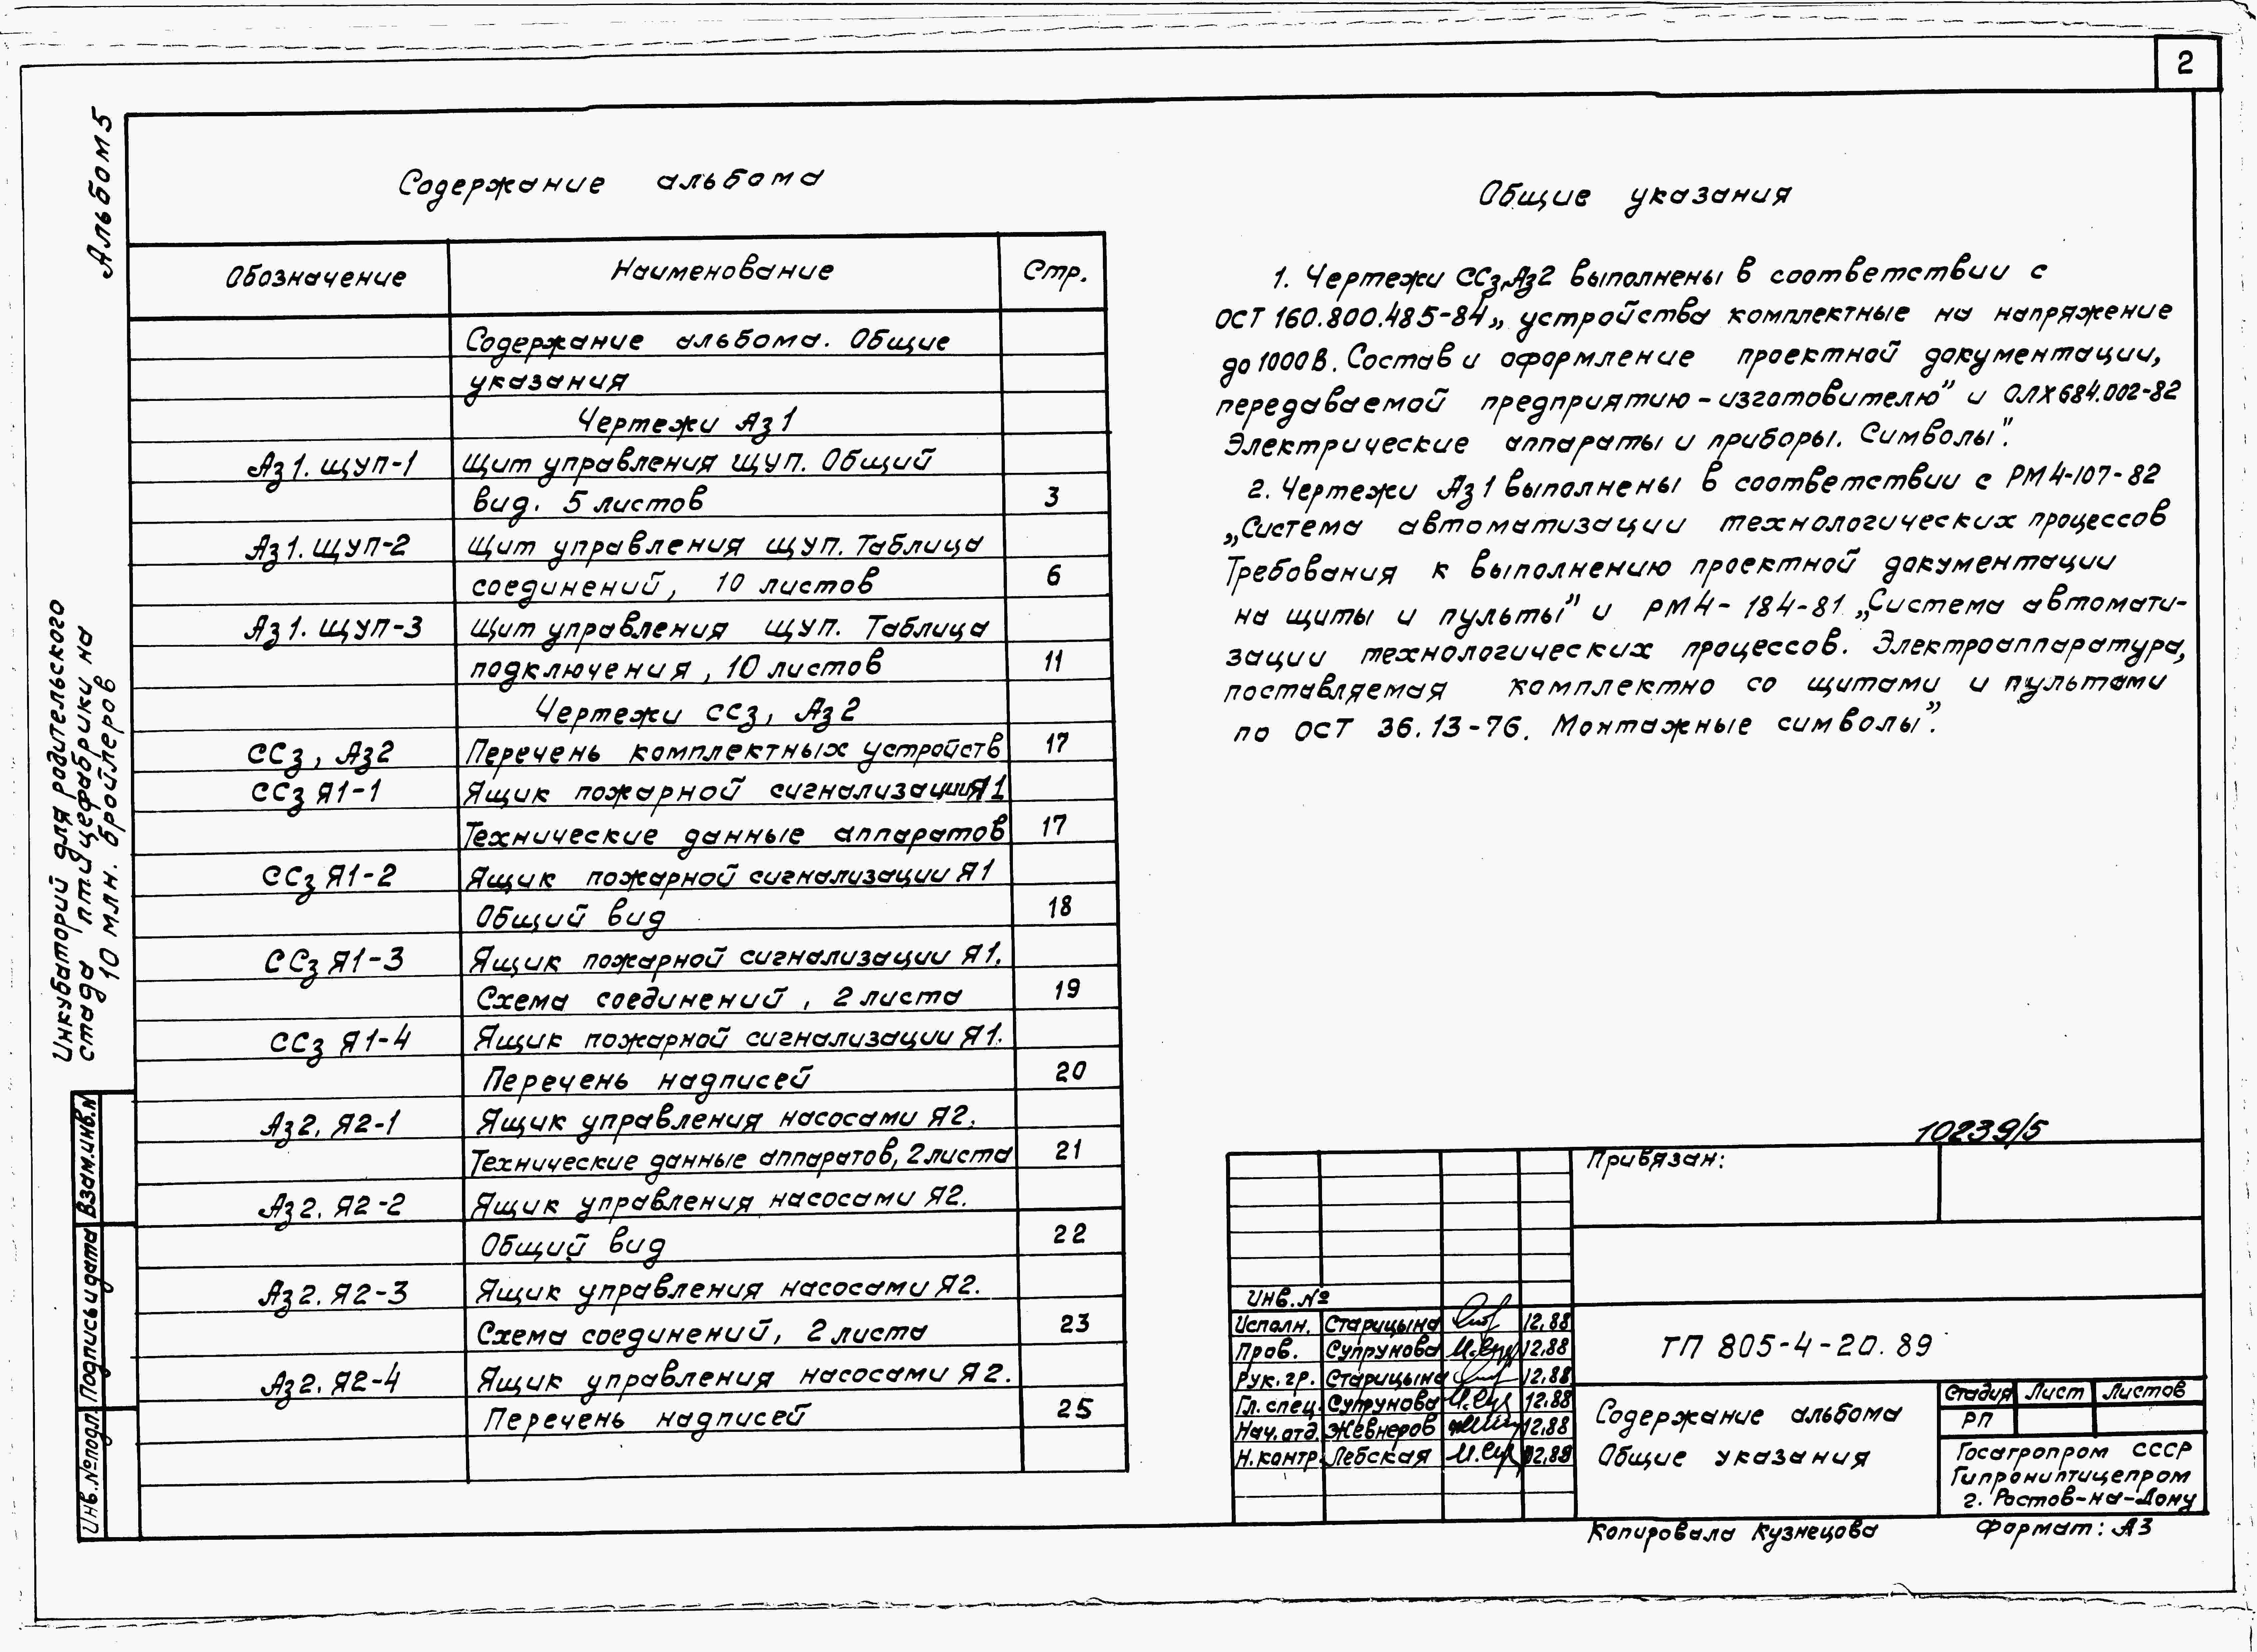 2
Альбом 5
Инкубаторий для родительского
стада птицефабрики на
10 млн. бройлеров
Взам.инв.N
Подпись и дата
Инв.№подл.
Содержание альбома
Обозначение Наименование Стр.
Содержание альбома. Общие
указания
Чертежи Аз1
Аз1. ЩУП-1 Щит управления ЩУП. Общий
вид. 5 листов 3
Аз1. ЩУП-2 Щит управления ЩУП. Таблица
соединений, 10 листов 6
Аз1. ЩУП-3 Щит управления ЩУП. Таблица
подключения, 10 листов 11
Чертежи ССз, Аз2
ССз, Аз2 Перечень комплектных устройств 17
ССз Я1-1 Ящик пожарной сигнализации Я1
Технические данные аппаратов 17
ССз Я1-2 Ящик пожарной сигнализации Я1
Общий вид 18
ССз Я1-3 Ящик пожарной сигнализации Я1.
Схема соединений, 2 листа 19
ССз Я1-4 Ящик пожарной сигнализации Я1.
Перечень надписей 20
Аз2. Я2-1 Ящик управления насосами Я2.
Технические данные аппаратов, 2 листа 21
Аз2. Я2-2 Ящик управления насосами Я2.
Общий вид 22
Аз2. Я2-3 Ящик управления насосами Я2.
Схема соединений, 2 листа 23
Аз2. Я2-4 Ящик управления насосами Я2.
Перечень надписей 25
Общие указания
1. Чертежи ССз,Аз2 выполнены в соответствии с
ОСТ 160.800.485-84 „устройства комплектные на напряжение
до 1000 В. Состав и оформление проектной документации,
передаваемой предприятию-изготовителю” и ОЛХ684.002-82
Электрические аппараты и приборы. Символы”.
2. Чертежи Аз1 выполнены в соответствии с РМ4-107-82
„Система автоматизации технологических процессов
Требования к выполнению проектной документации
на щиты и пульты” и РМ4-184-81 „Система автомати-
зации технологических процессов. Электроаппаратура,
поставляемая комплектно со щитами и пультами
по ОСТ 36.13-76. Монтажные символы”.
10239/5
Привязан:
Инв.№
Исполн. Старицына 12.88
Пров. Супрунова 12.88
Рук.гр. Старицына 12.88
Гл.спец. Супрунова 12.88
Нач.отд. Жевнеров 12.88
Н.контр. Лебская 12.88
ТП 805-4-20.89
Содержание альбома
Общие указания
Стадия Лист Листов
РП
Госагропром СССР
Гипрониптицепром
г. Ростов-на-Дону
Копировала Кузнецова Формат: А3